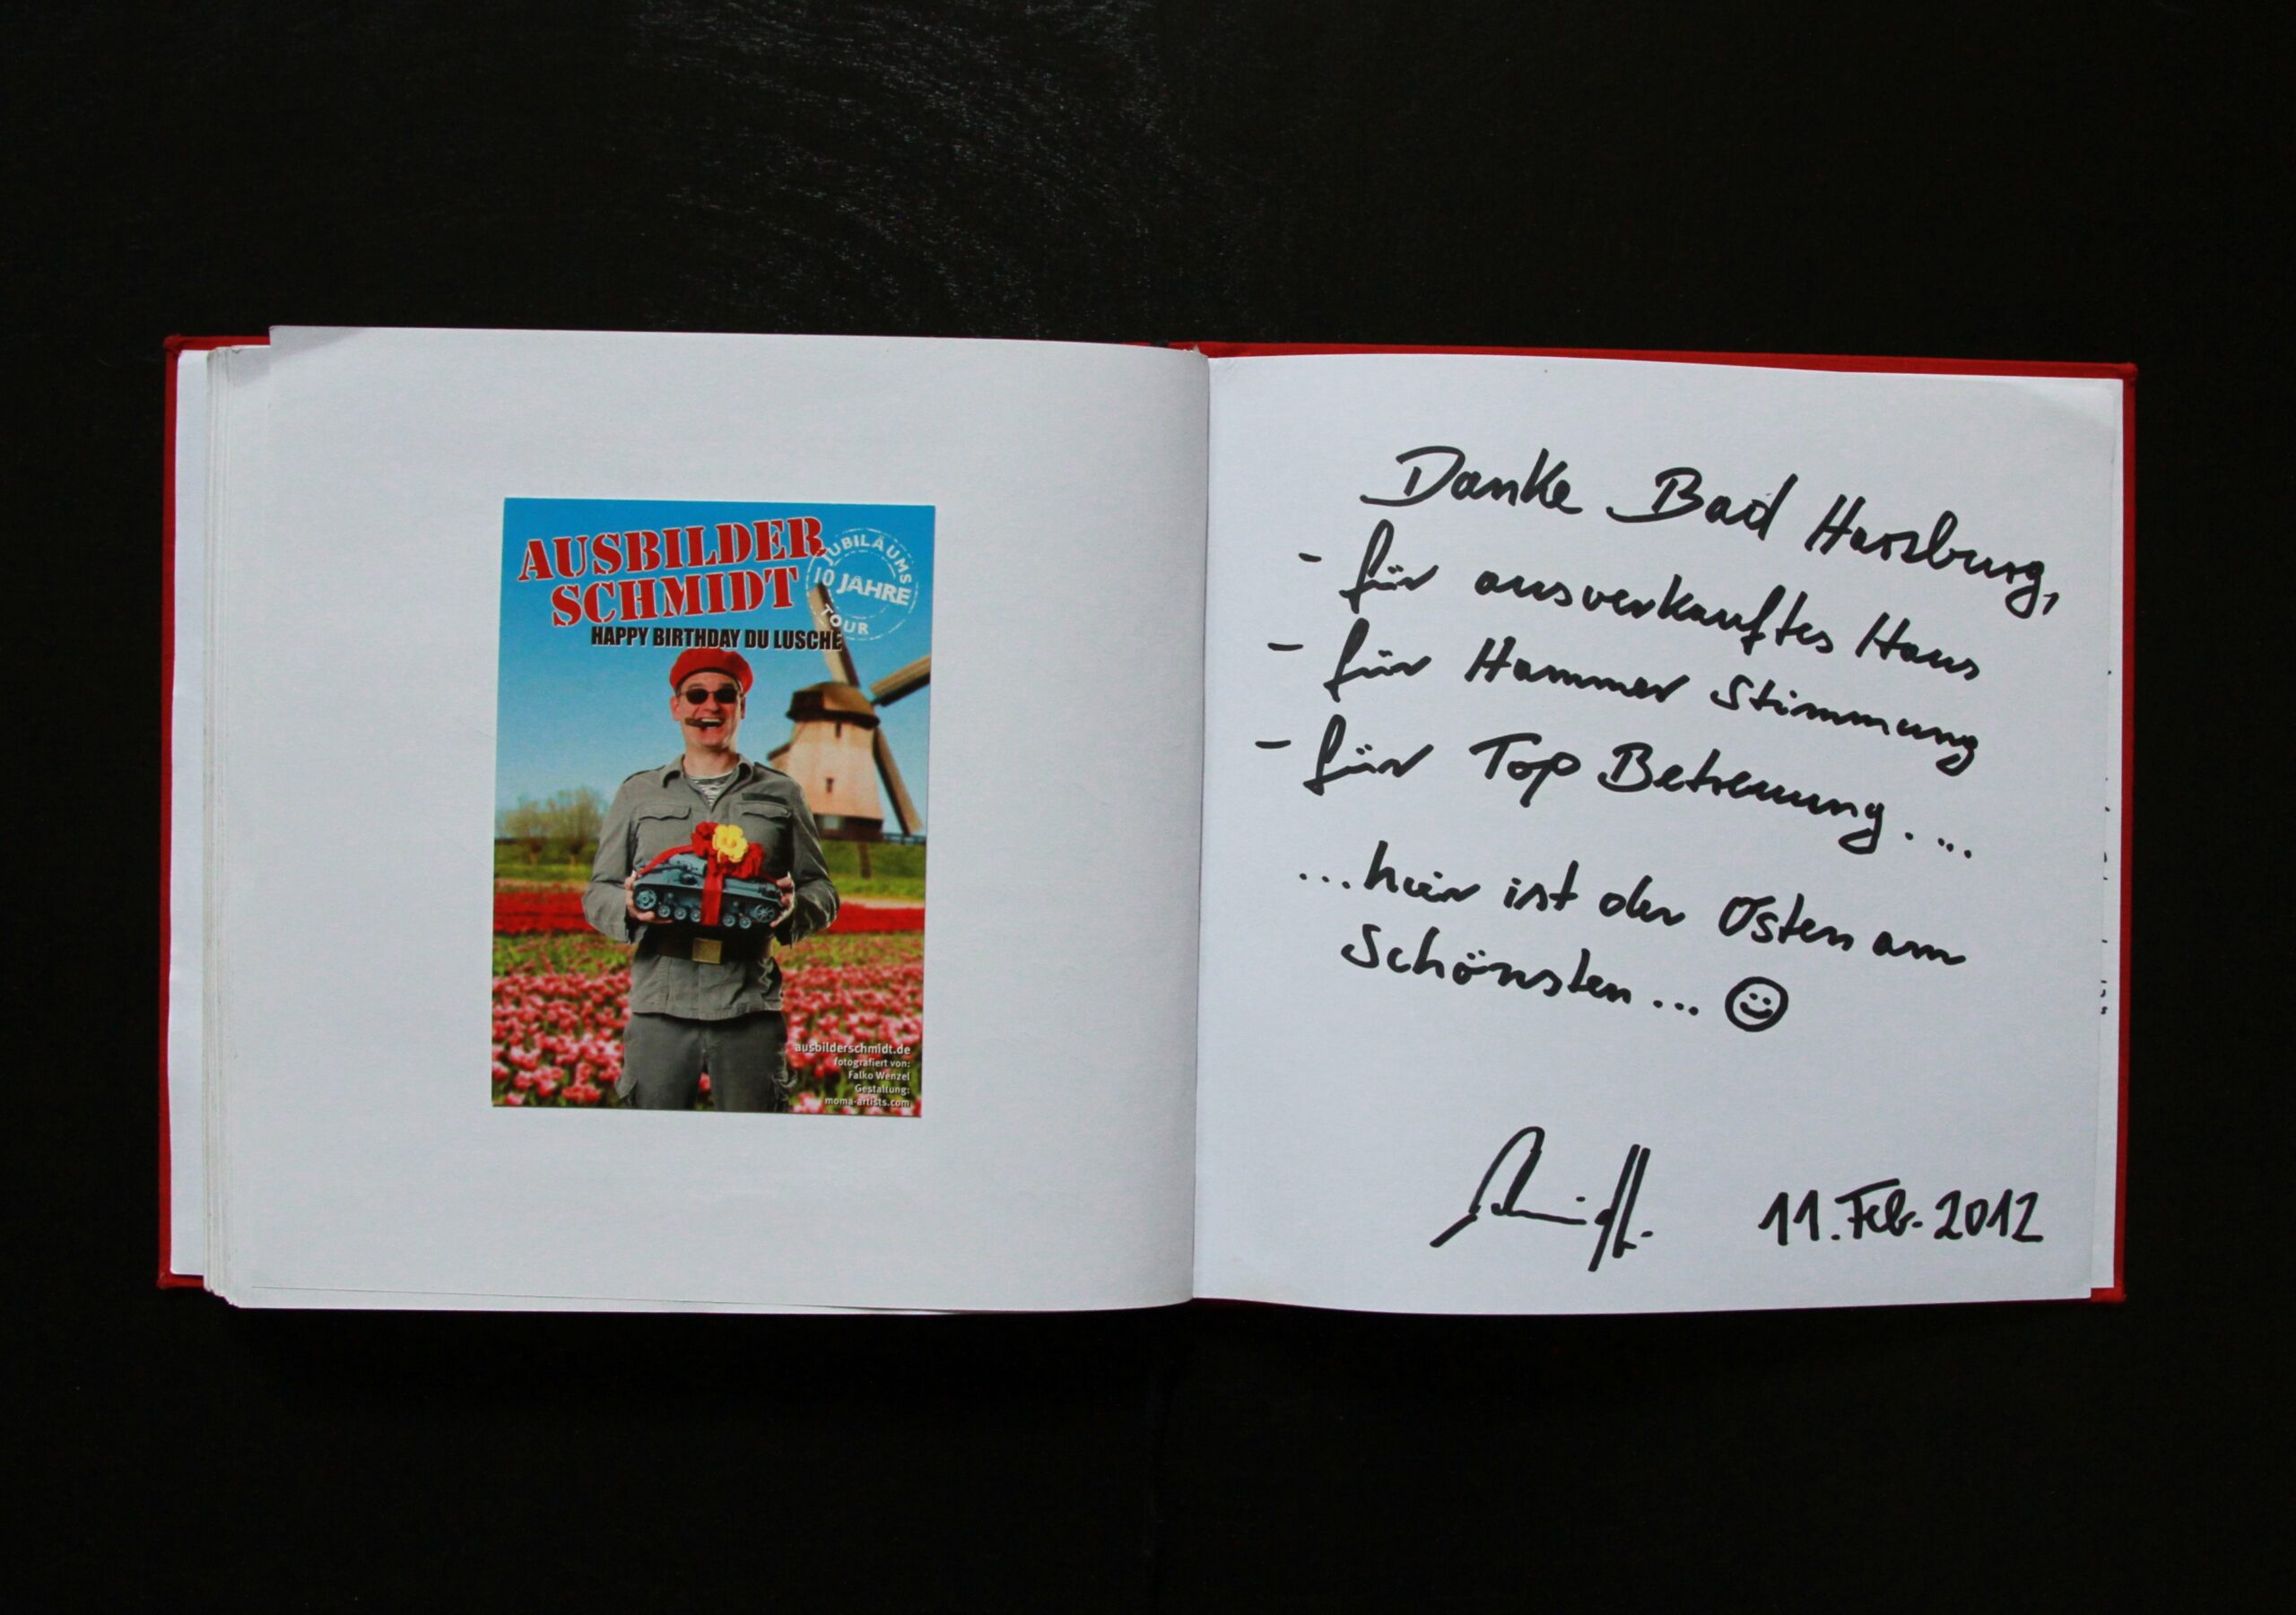 AUSBILDER
SCHMIDT
JUBILÄUMS
10 JAHRE
TOUR
HAPPY BIRTHDAY DU LUSCHE
ausbilderschmidt.de
fotografiert von:
Falko Wenzel
Gestaltung:
moma-artists.com
Danke Bad Harzburg,
- für ausverkauftes Haus
- für Hammer Stimmung
- für Top Betreuung....
...hier ist der Osten am
Schönsten... ☺
Schmidt
11. Feb. 2012